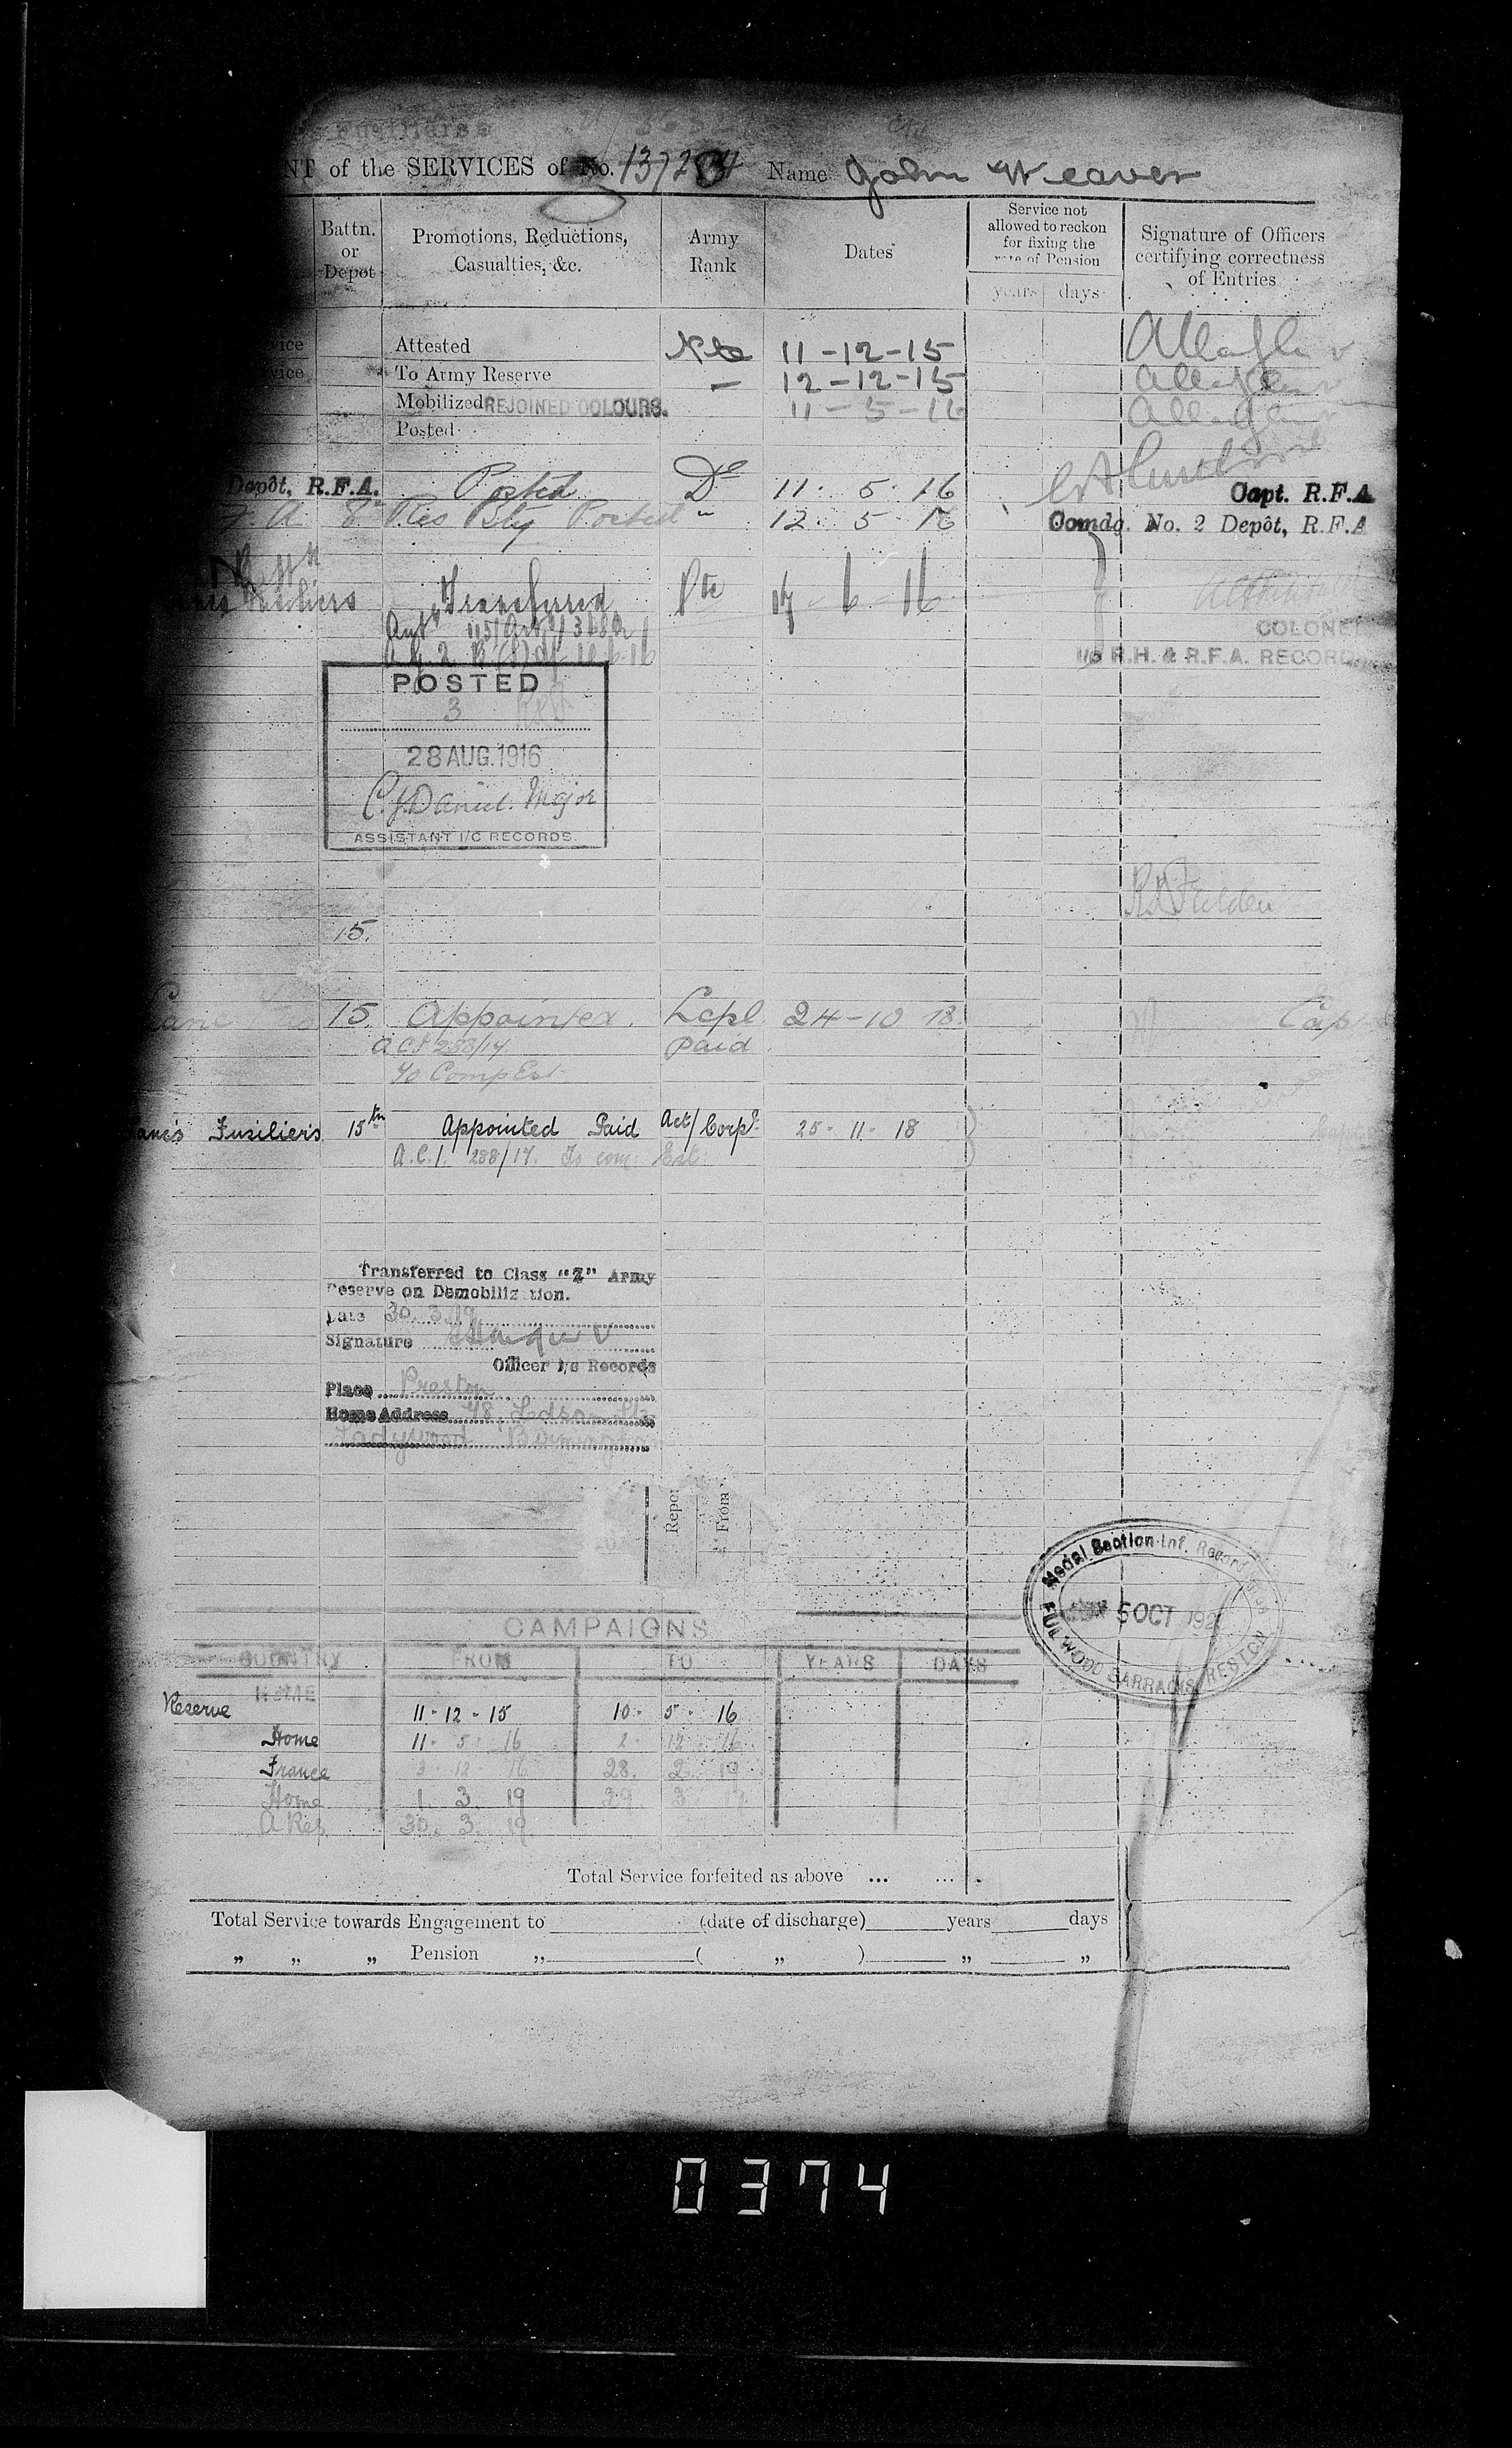 Fusiliers
NT of the SERVICES of No. 137284 Name John Weaver
Battn. or Depot
Promotions, Reductions, Casualties, &c.
Army Rank
Dates
Service not allowed to reckon for fixing the rate of Pension
years days
Signature of Officers certifying correctness of Entries
vice Attested Pte 11-12-15
vice To Army Reserve — 12-12-15
Mobilized REJOINED COLOURS. 11-5-16
Posted
Depôt, R.F.A. Posted Dr 11. 5. 16 Capt. R.F.A
F A 8 Res Bty Posted " 12. 5. 16 Comdg. No. 2 Depôt, R.F.A
Fusiliers Transferred Pte 17 6 16
COLONEL
I/c R.H. & R.F.A. RECORDS
POSTED
3
28 AUG. 1916
C.J. Daniel. Major
ASSISTANT I/C RECORDS.
R Fielden
15.
Lanc Fus 15. Appointed. Lcpl 24-10 18. Cap
ACI 288/17. Paid
To Comp Est.
Lancs Fusiliers 15th Appointed Paid Act/Corpl 25-11-18 Capt
A.C.I. 288/17. To com: Est:
Transferred to Class "Z" Army
Reserve on Demobilization.
Date 30. 3. 19
Signature
Officer i/c Records
Place Preston
Home Address 48,
Ladywood Birmingham
Repor
From
Medal Section Inf. Record
5 OCT 192
FULWOOD BARRACKS PRESTON
CAMPAIGNS
COUNTRY FROM TO YEARS DAYS
HOME
Reserve 11-12-15 10-5-16
Home 11. 5. 16 2. 12. 16
France 3 12 16 28. 2. 19
Home 1. 3. 19 29 3
A Res 30. 3. 19
Total Service forfeited as above ... ... .
Total Service towards Engagement to (date of discharge) years days
„ „ „ Pension „ ( „ ) „ „
0374